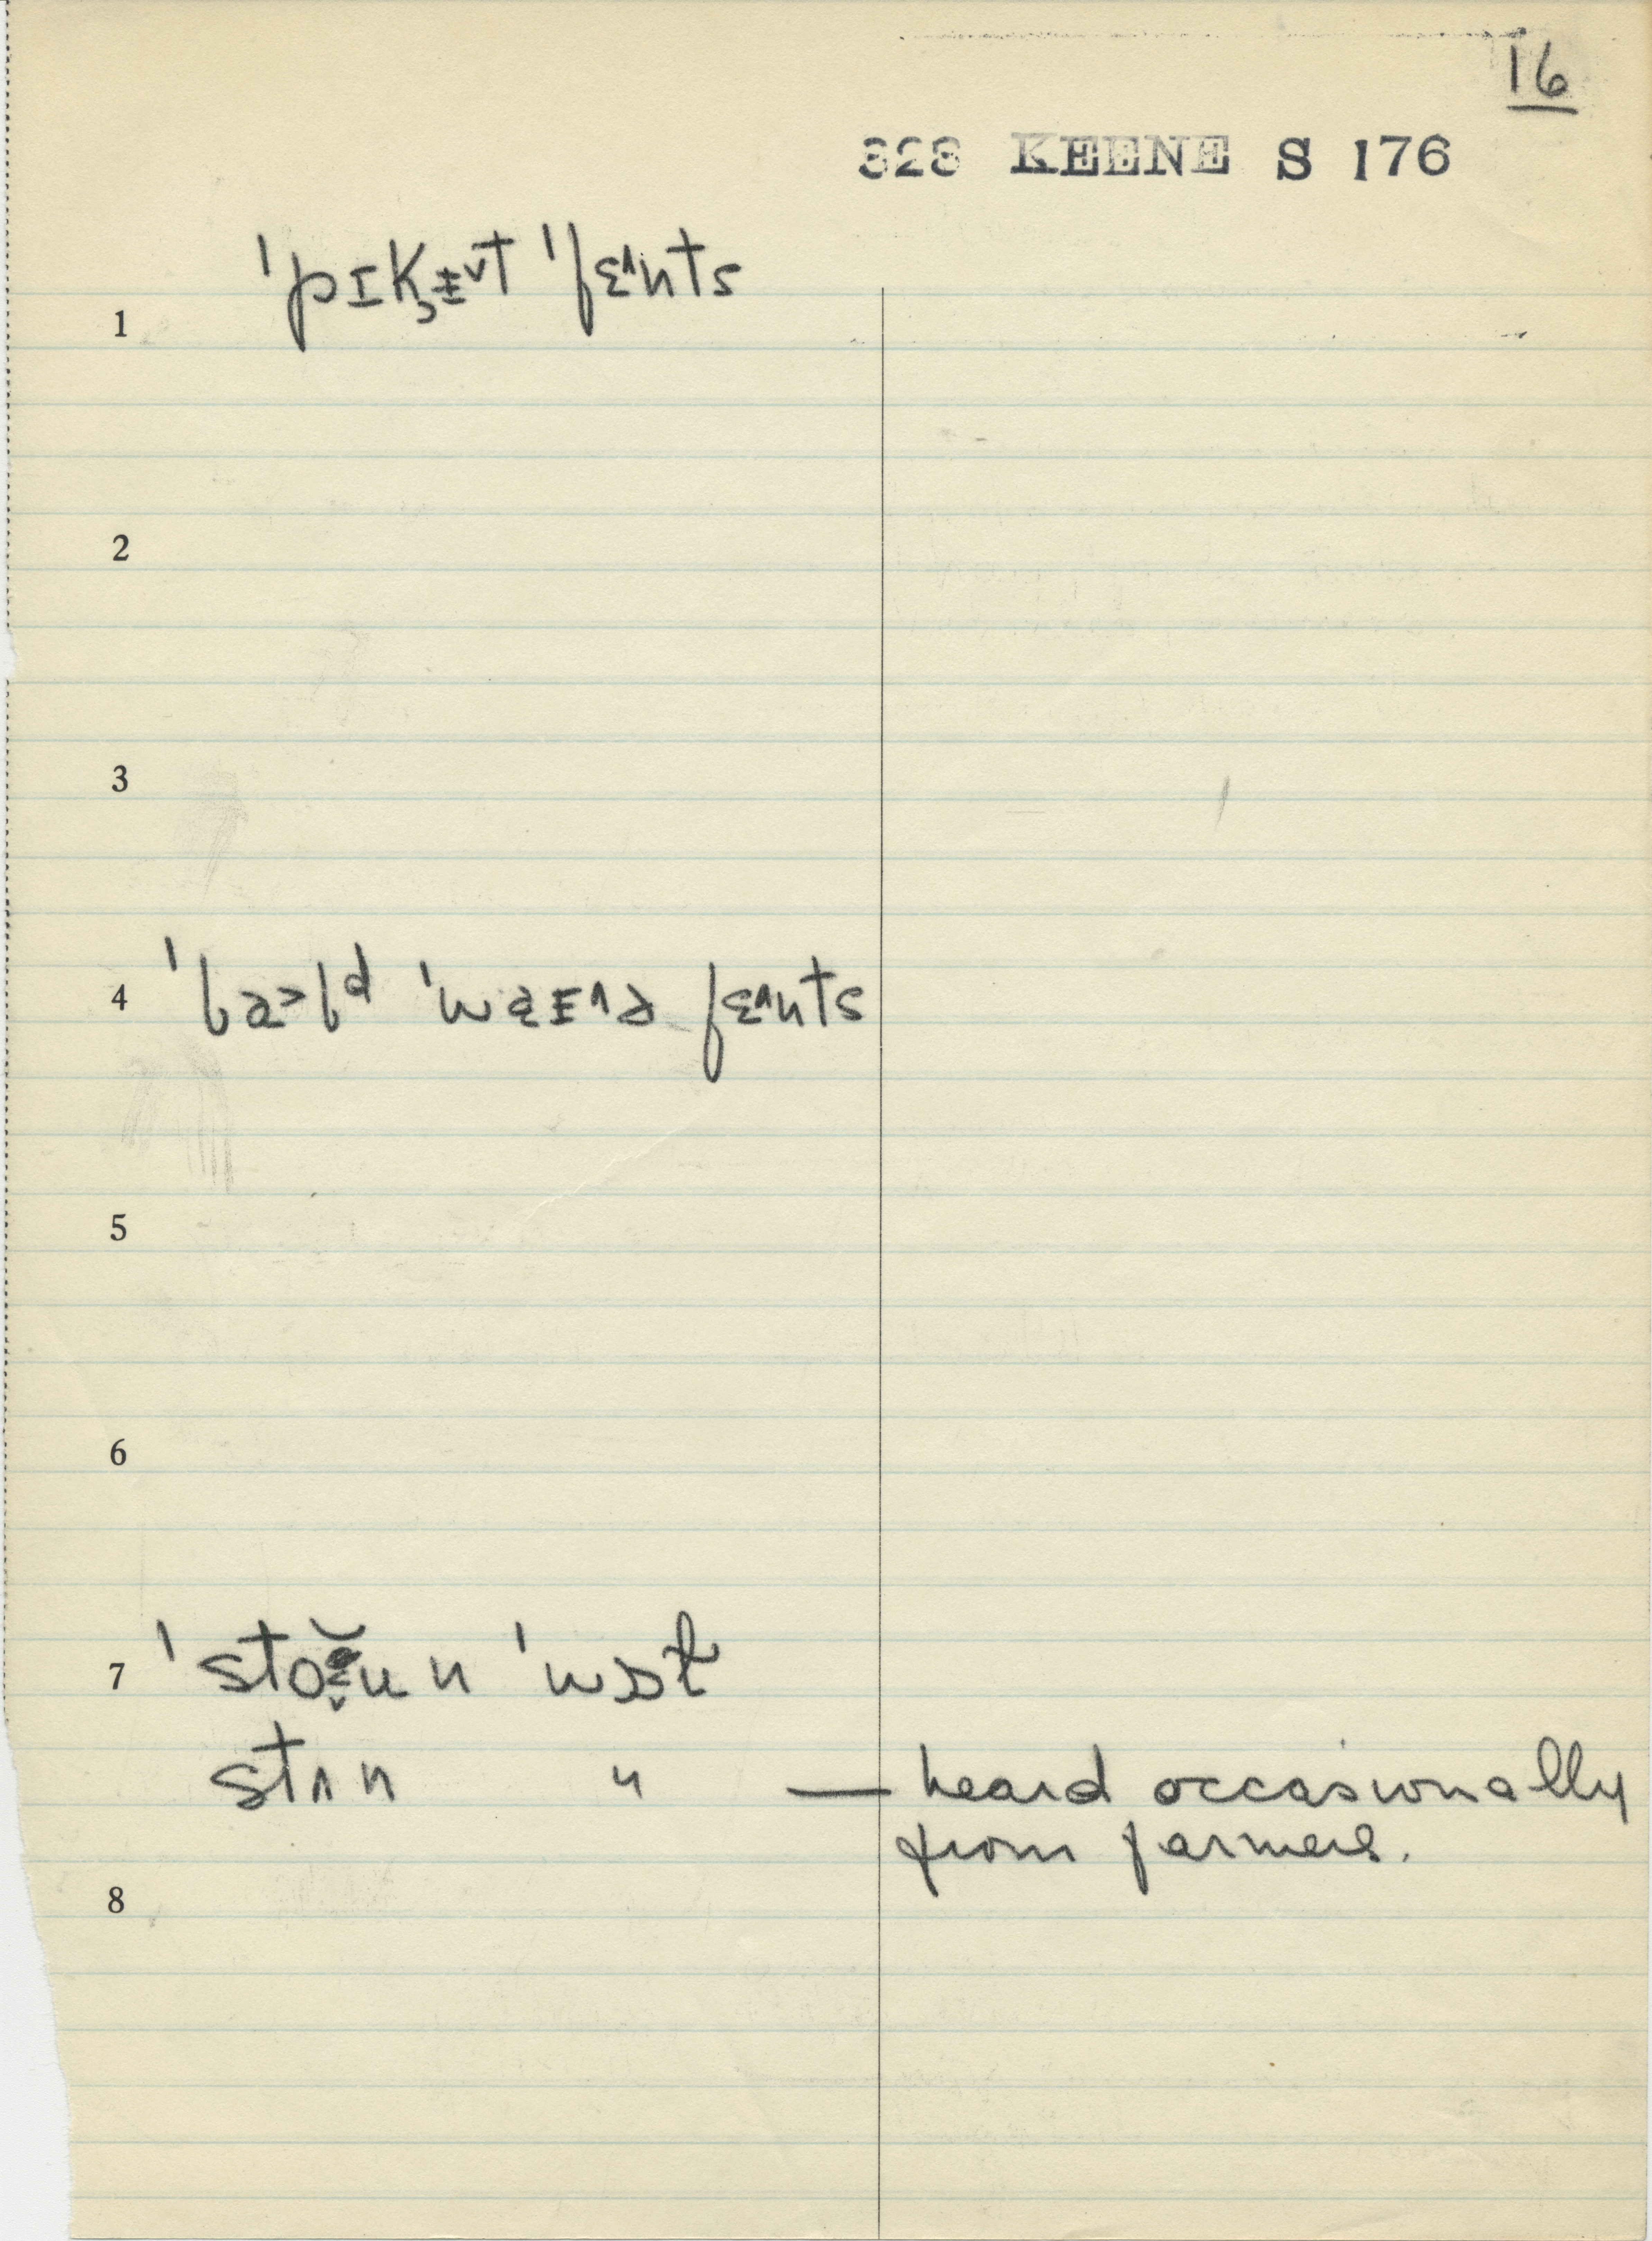 16
323 KEENE S 176
1 ˈpɪk̹ᵻ˅t ˈfɛ˄nts
2
3
4 ˈbɑ˃bᵈ ˈwɐᵻ˄ɚ fɛ˄nts
5
6
7 ˈstoʊ̆n ˈwɔɫ
stʌn " — heard occasionally
from farmers.
8